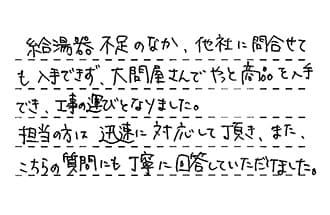 給湯器不足のなか、他社に問合せて
も入手できず、大問屋さんでやっと商品を入手
でき、工事の運びとなりました。
担当の方は迅速に対応して頂き、また、
こちらの質問にも丁寧に回答していただけました。